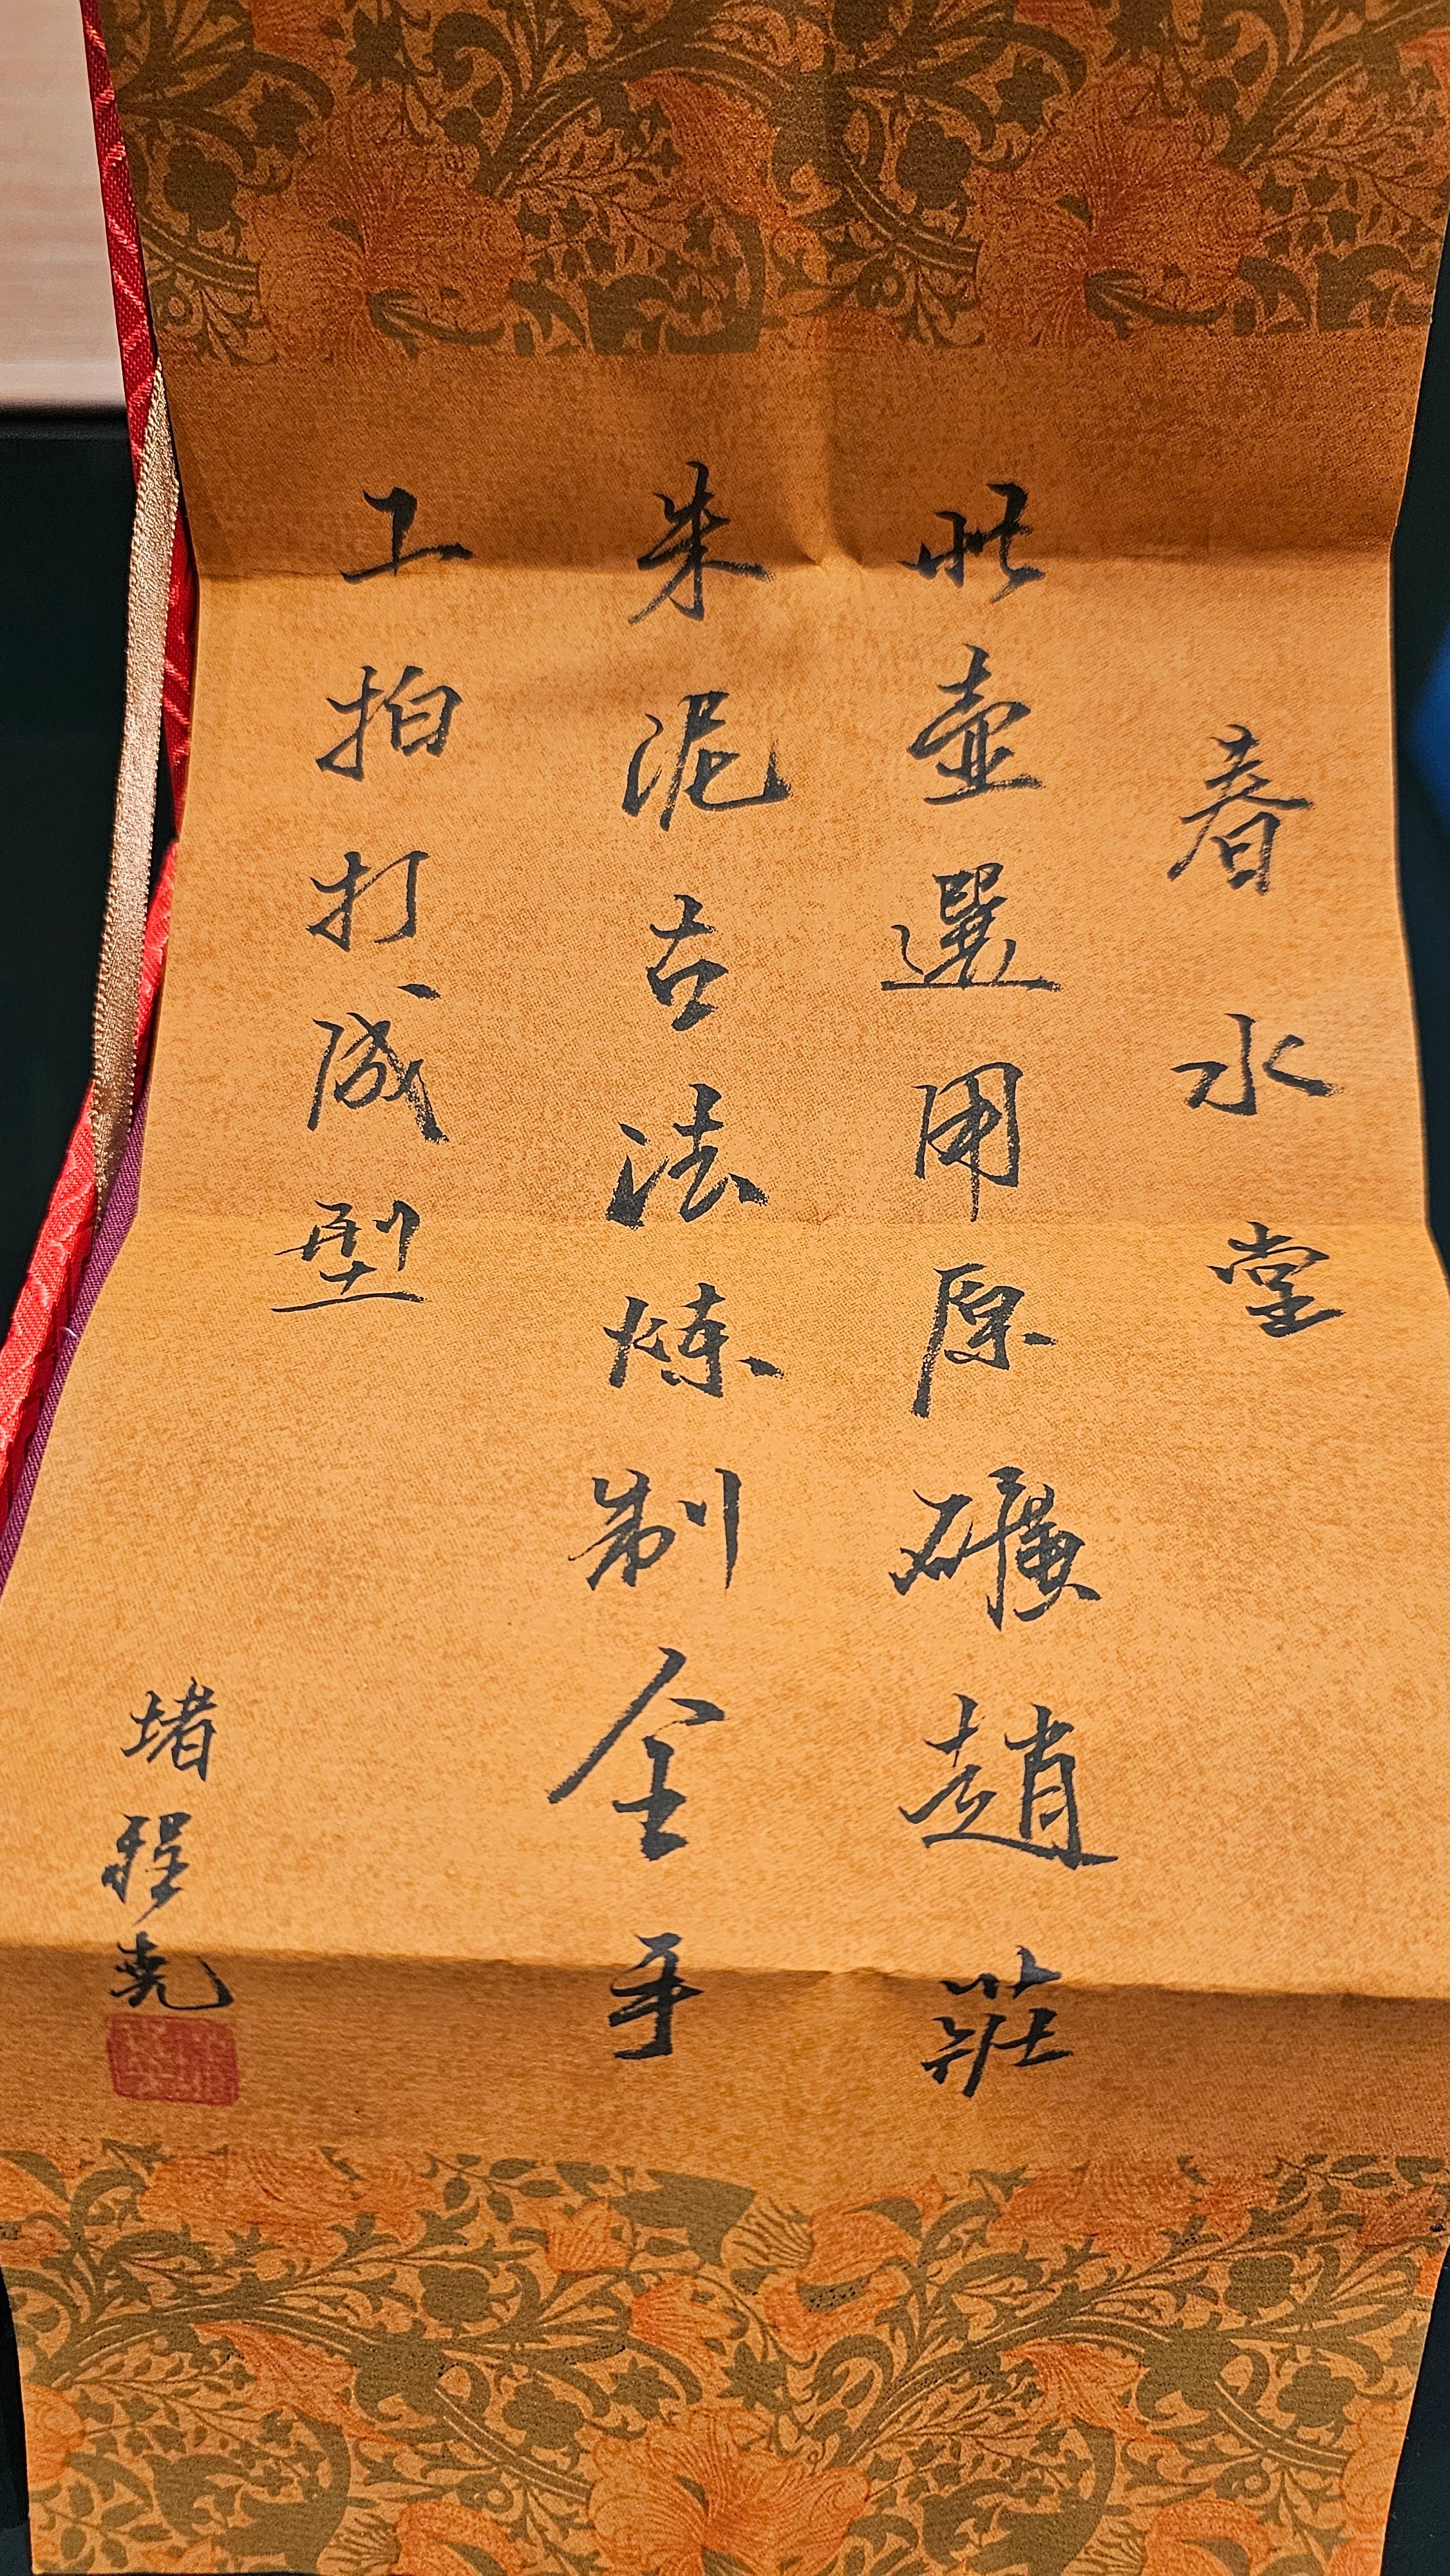 春水堂
此壺選用原礦趙莊
朱泥古法炼制全手
工拍打成型
堵程堯